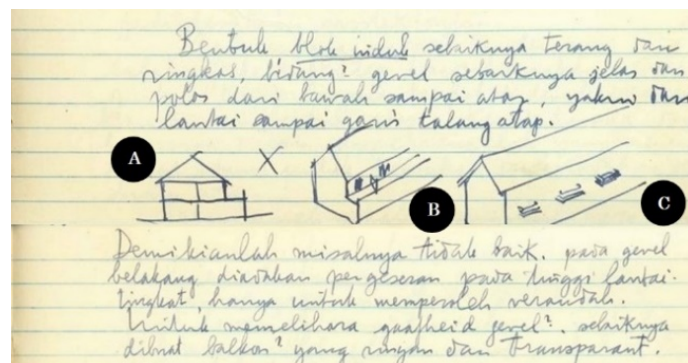 Bentuk blok induk sebaiknya terang dan
ringkas, bidang² gevel sebaiknya jelas dan
polos dari bawah sampai atap, yakni dari
lantai sampai garis talang atap.
A
B
C
Demikianlah misalnya tidak baik. pada gevel
belakang diadakan pergeseran pada tinggi lantai
tingkat, hanya untuk memperoleh verandah.
Untuk memelihara gaafheid gevel², sebaiknya
dibuat balkon² yang ringan dan transparant.